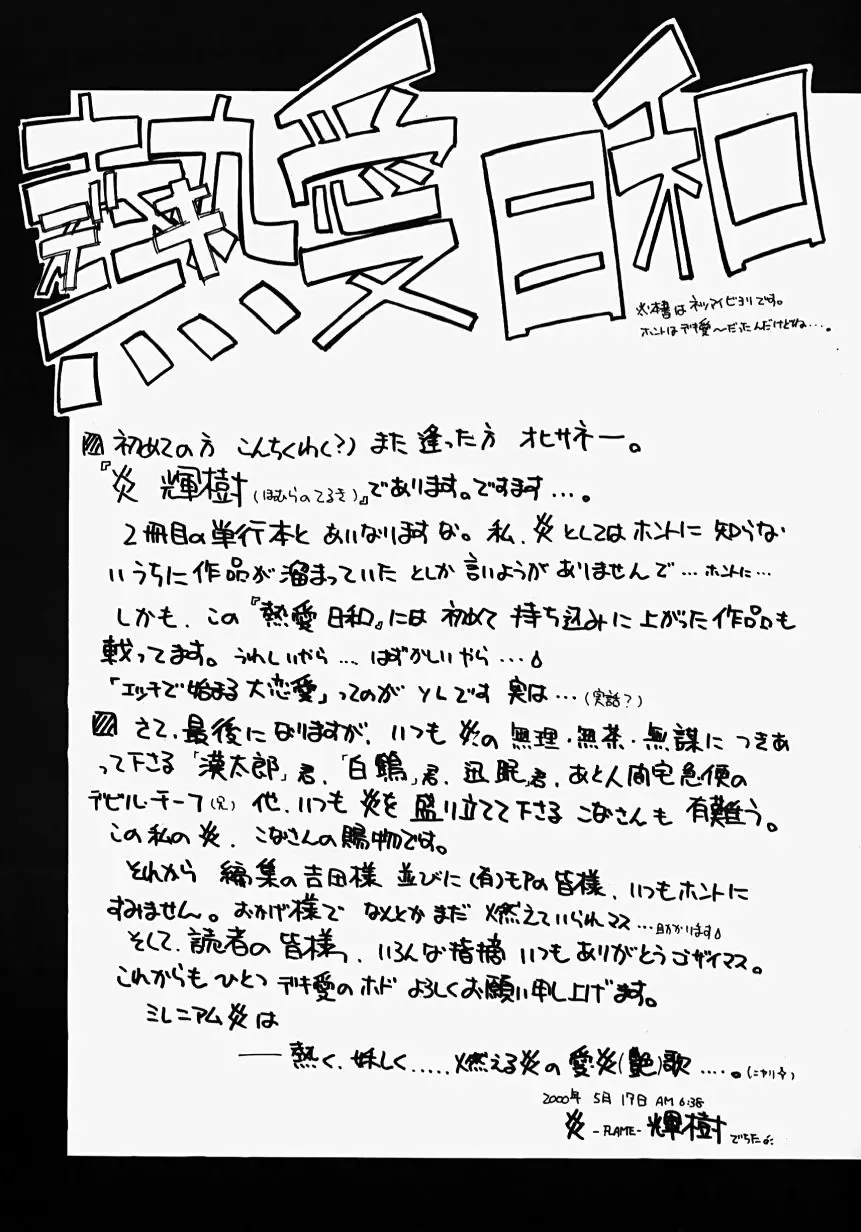 熱愛日和
デキ
※本書はネツアイビヨリです。
ホントはデキ愛〜だったんだけどね…。
初めての方 こんちくわ(?) また逢った方 オヒサネー。
『炎 輝樹(ほむらのてるき)』であります。ですます…。
2冊目の単行本と あいなりますな。私、炎としてはホントに 知らな
いうちに作品が溜まっていた としか言いようがありませんで…ホントに…
しかも、この『熱愛日和』には 初めて 持ち込みに上がった作品も
載ってます。うれしいやら…はずかしいやら…
「エッチで始まる大恋愛」ってのが ソレです 実は…(実話?)
さて、最後になりますが、いつも炎の無理・無茶・無謀に つきあ
って下さる「漢太郎」君、「白鶴」君、迅眠君、あと人間宅急便の
デビル・チーフ(兄) 他、いつも炎を 盛り立てて下さる こなさんも 有難う。
この私の炎、こなさんの賜物です。
それから 編集の吉田様 並びに(有)モアの皆様、いつもホントに
すみません。おかげ様で なんとかまだ 燃えていられマス…助かります
そして、読者の皆様っ、いろんな指摘 いつもありがとうゴザイマス。
これからも ひとつ デキ愛のホド よろしくお願い申し上げます。
ミレニアム炎は
―― 熱く、妖しく.....燃える炎の 愛炎(艶)歌 ……。(ニヤリ)
2000年 5月 17日 AM 6:38
炎 -FLAME- 輝樹 でちたよ